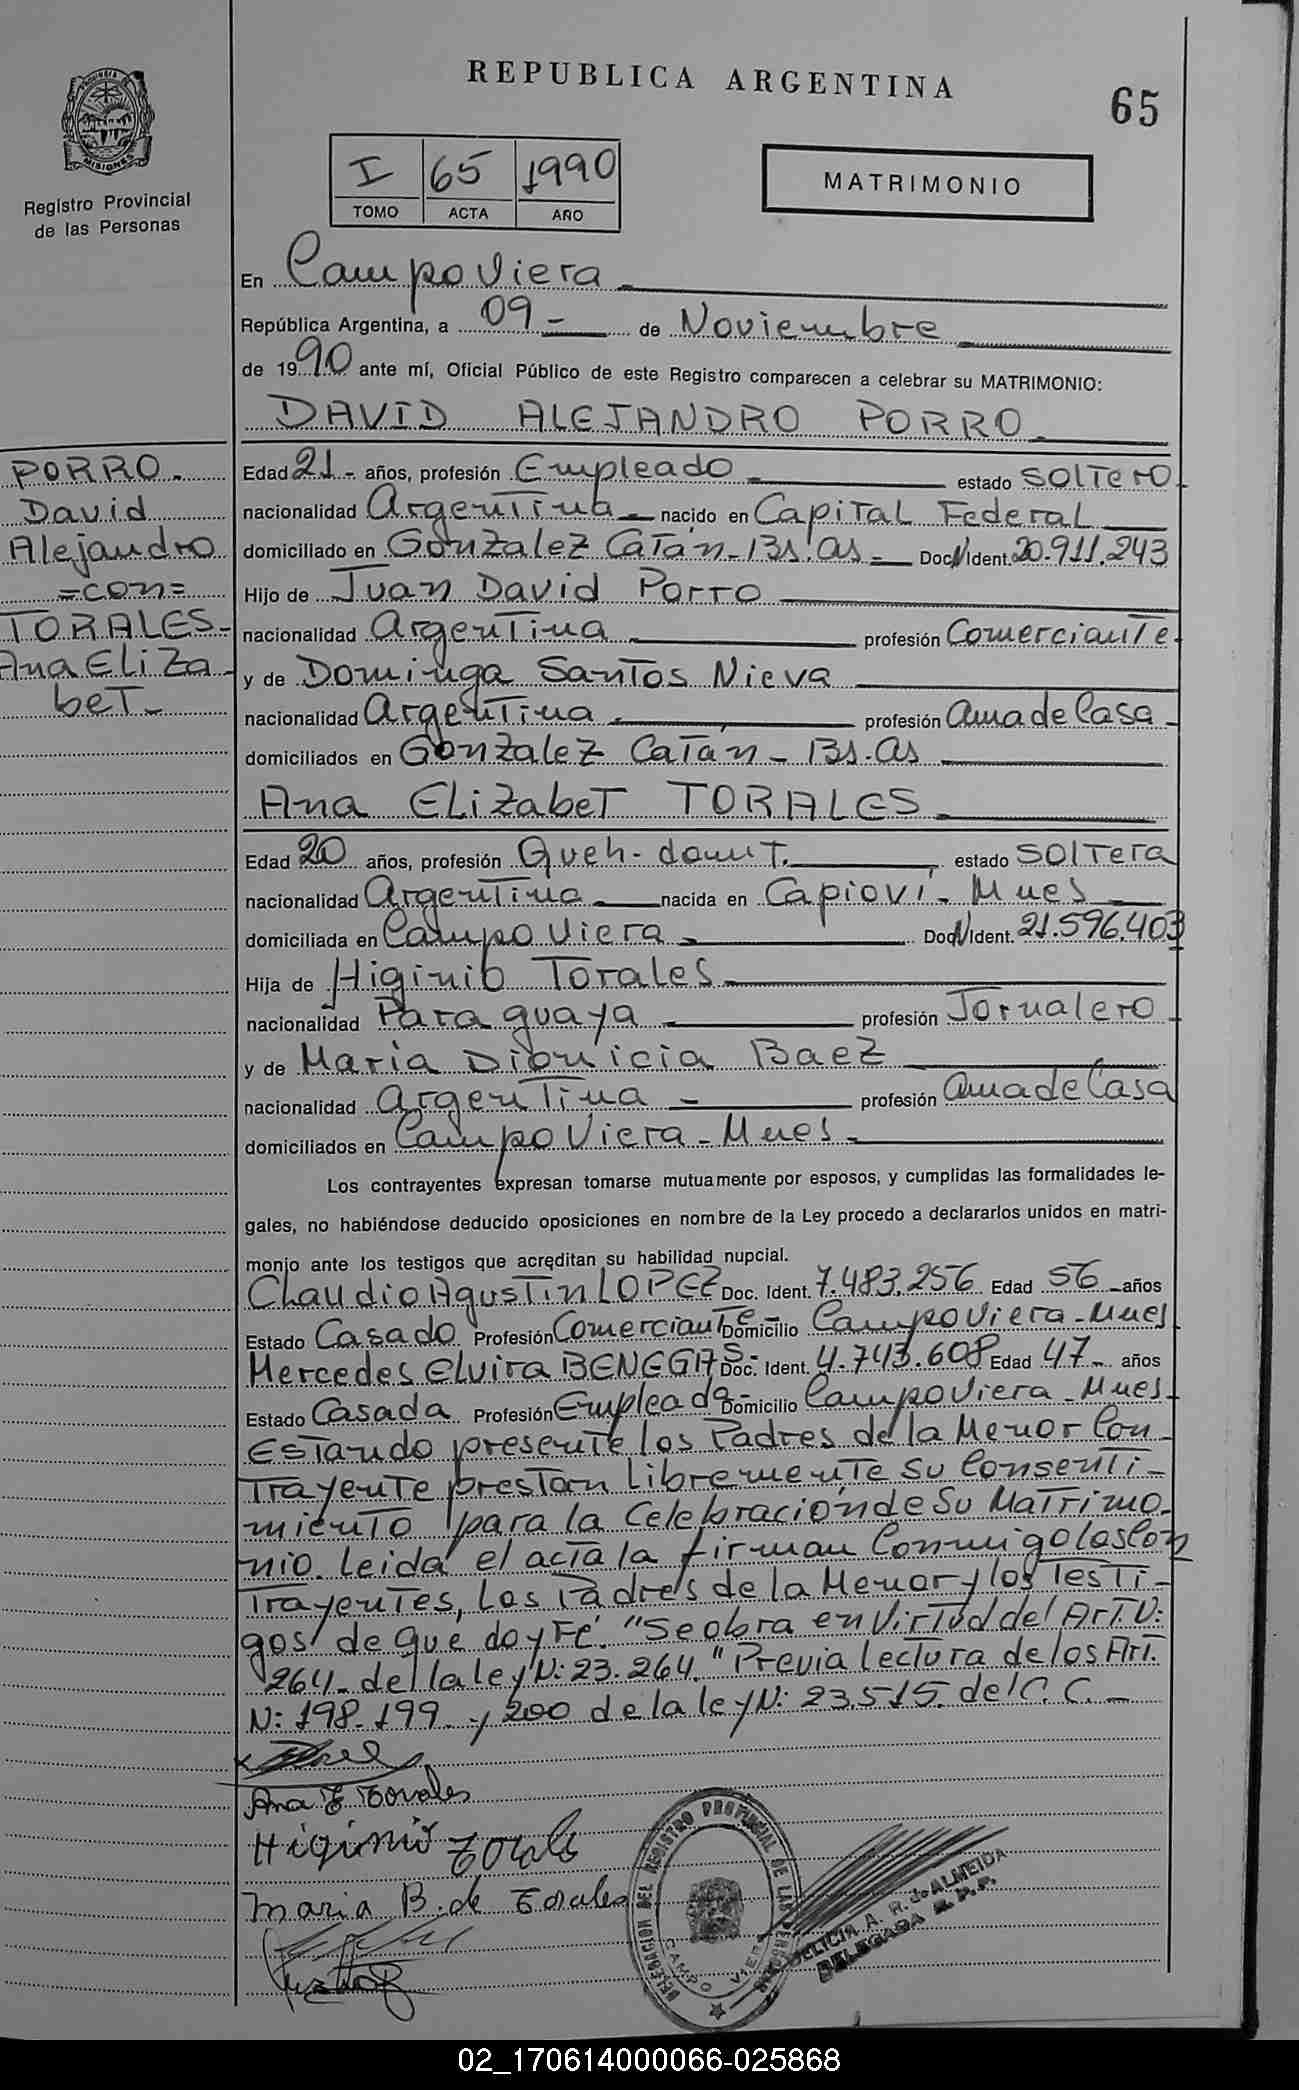 REPUBLICA ARGENTINA
65
MISIONES
Registro Provincial
de las Personas
I 65 1990
TOMO ACTA AÑO
MATRIMONIO
En Campo Viera
República Argentina, a 09 de Noviembre
de 1990 ante mí, Oficial Público de este Registro comparecen a celebrar su MATRIMONIO:
DAVID ALEJANDRO PORRO
PORRO.
David
Alejandro
=con=
TORALES-
Ana Eliza
beT-
Edad 21- años, profesión Empleado estado SOLTERO
nacionalidad ArgenTina nacido en CapiTAL Federal
domiciliado en Gonzalez CaTán-Bs.as- Doc N Ident. 20.911.243
Hijo de Juan David Porro
nacionalidad ArgenTina profesión ComercianTe
y de Dominga SanTos Nieva
nacionalidad ArgenTina profesión ama de Casa
domiciliados en Gonzalez CaTán-Bs.as
Ana ELizabeT TORALES
Edad 20 años, profesión Queh-domT. estado SOLTera
nacionalidad ArgenTina nacida en Capioví- Mnes
domiciliada en Campo Viera Doc N Ident. 21.596.403
Hija de Higinio Torales
nacionalidad Paraguaya profesión Jornalero
y de María Dionicia Baez
nacionalidad ArgenTina profesión ama de Casa
domiciliados en Campo Viera-Mnes-
Los contrayentes expresan tomarse mutuamente por esposos, y cumplidas las formalidades le-
gales, no habiéndose deducido oposiciones en nombre de la Ley procedo a declararlos unidos en matri-
monio ante los testigos que acreditan su habilidad nupcial.
Claudio AgusTin LOPEZ Doc. Ident. 7.483.256 Edad 56 años
Estado Casado Profesión ComercianTe- Domicilio Campo Viera-Mnes
Mercedes Elvira BENEGAS- Doc. Ident. 4.743.608 Edad 47- años
Estado Casada Profesión Empleada- Domicilio Campo Viera-Mnes-
EsTando presenTe los Padres de la Menor Con-
TrayenTe presTan LibremenTe su ConsenTi-
mienTo para la Celebración de Su MaTrimo-
nio. leida el acTa la firman Conmigo los Con
TrayenTes, Los Padres de la Menor y los TesTi-
gos de que doy Fé. "Se obra en VirTud del ArT. N:
264 de la ley N: 23.264." Previa lecTura de los ArT.
N: 198-199 y 200 de la ley N: 23.515. del C.C.-
Ana E Torales
Higinio Torales
maria B. de Torales
DELEGACION DEL REGISTRO PROVINCIAL DE LAS PERSONAS
CAMPO VIERA
DELICIA A. R. de ALMEIDA
DELEGADA R.P.P.
02_170614000066-025868